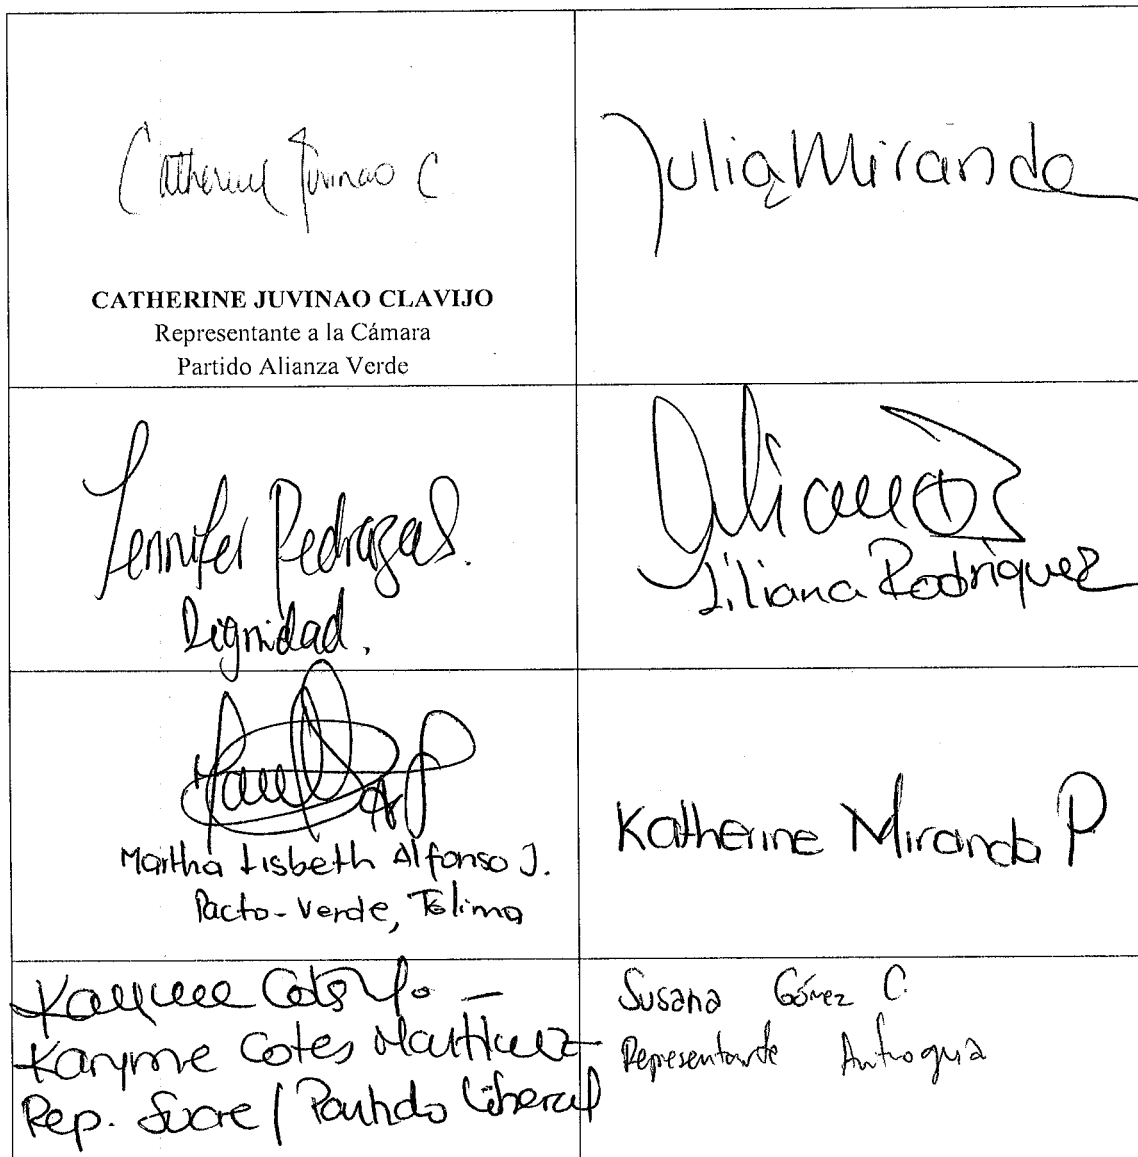 Catherine Juvinao C
CATHERINE JUVINAO CLAVIJO
Representante a la Cámara
Partido Alianza Verde
Julia Miranda
Jennifer Pedraza S.
Dignidad.
Liliana Rodríguez
Martha Lisbeth Alfonso J.
Pacto-Verde, Tolima
Katherine Miranda P
Karyme Cotes M. -
Karyme Cotes Martínez
Rep. Sucre / Partido Liberal
Susana Gómez C.
Representante Antioquia